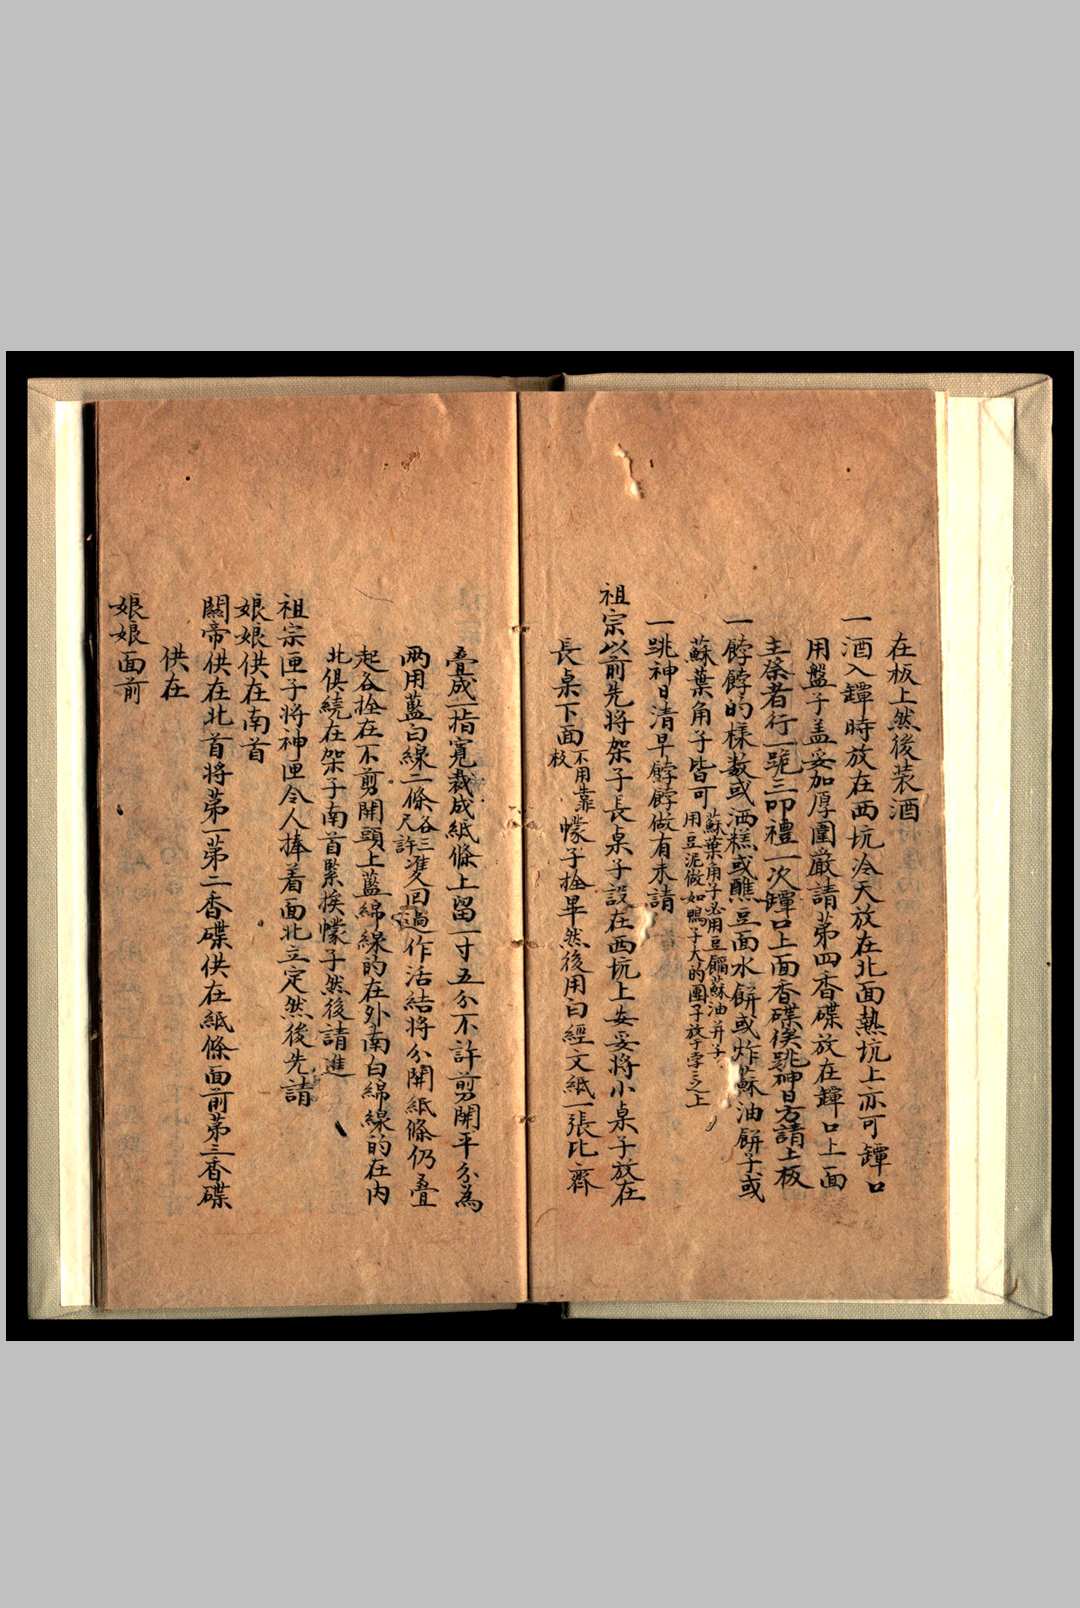 在板上然後装酒
一酒入罈時放在西坑冷天放在北面熱坑上亦可罈口
用盤子盖妥加厚圍嚴請苐四香碟放在罈口上面
主祭者行一跪三叩禮一次罈口上面香碟俟跳神日方請上板
一餑餑的樣数或洒糕或醮豆面水餅或炸蘇油餅子或
蘇葉角子皆可
蘇葉角子必用豆餡蘇油并子
用豆泥做如鴨子大的團子放于孛〻之上
一跳神日清早餑餑做有未請
祖宗以前先將架子長桌子設在西坑上妥妥將小桌子放在
長桌下面
不用靠
板
幪子拴畢然後用白經文紙一張比齊
叠成一指寛裁成紙條上留一寸五分不許剪開平分為
两用藍白線二條
各三
尺許
進又回過作活結將分開紙條仍叠
起各拴在不剪開頭上藍綿線的在外南白綿線的在内
北俱繞在架子南首緊挨幪子然後請進
祖宗匣子將神匣令人捧着面北立定然後先請
娘娘供在南首
關帝供在北首將苐一苐二香碟供在紙條面前苐三香碟
供在
娘娘面前